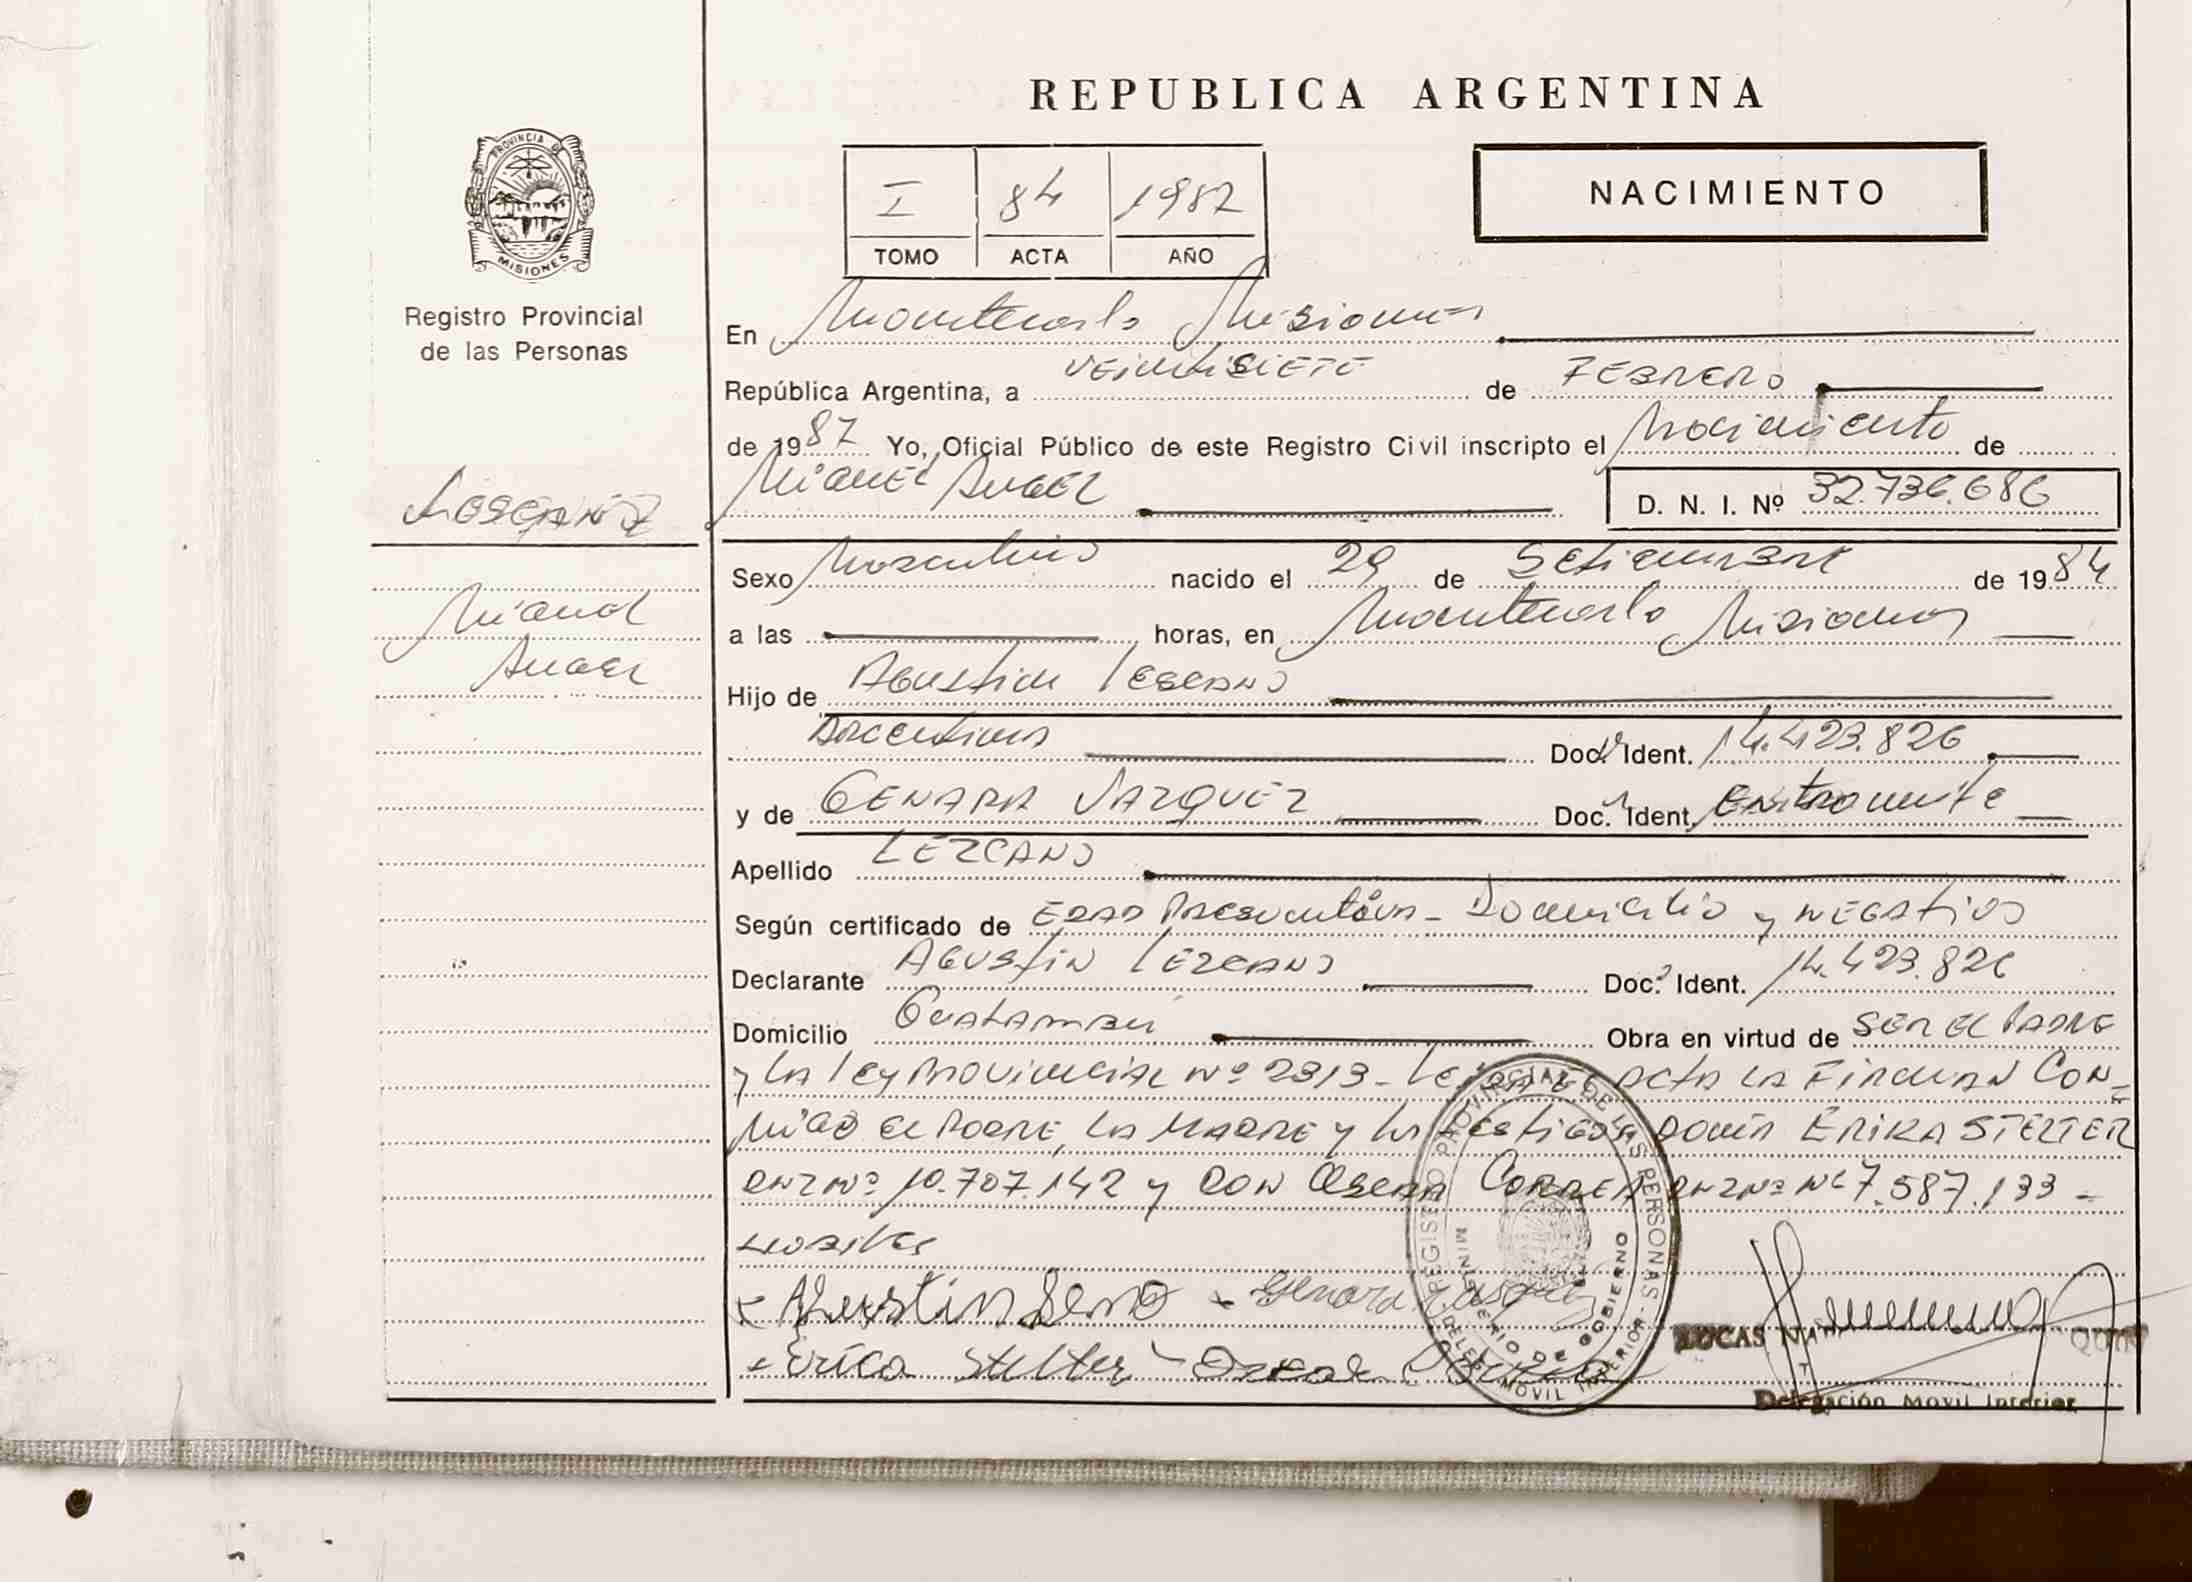 REPUBLICA ARGENTINA
PROVINCIA DE
MISIONES
Registro Provincial
de las Personas
I 84 1987
TOMO ACTA AÑO
NACIMIENTO
En Montecarlo Misiones
República Argentina, a veintisiete de FEBRERO
de 1987 Yo, Oficial Público de este Registro Civil inscripto el Nacimiento de
Miguel Angel
D. N. I. Nº 32.736.686
Miguel
Angel
Sexo Masculino nacido el 29 de Setiembre de 1984
a las horas, en Montecarlo Misiones
Hijo de Agustin Lezcano
Argentina Doc. Ident. 14.423.826
y de GENARA VAZQUEZ Doc. Ident.
Apellido LEZCANO
Según certificado de EDAD Presuntiva - Domicilio y NEGATIVO
Declarante AGUSTIN LEZCANO Doc. Ident. 14.423.826
Domicilio Guatambu Obra en virtud de SER EL PADRE
y LA Ley PROVINCIAL Nº 2313 - Leida el ACTA LA FIRMAN CON-
MIGO EL PADRE, LA MADRE y los testigos DOÑA ERIKA STELTER
DNI Nº 10.707.142 y DON OSCAR CORREA DNI Nº M 7.587.133 -
Agustin - Genara Vasquez
Erica Stelter - Oscar
REGISTRO PROVINCIAL DE LAS PERSONAS
MINISTERIO DE GOBIERNO
DELEG. MOVIL INTERIOR
LUCAS
Delegación Movil Interior